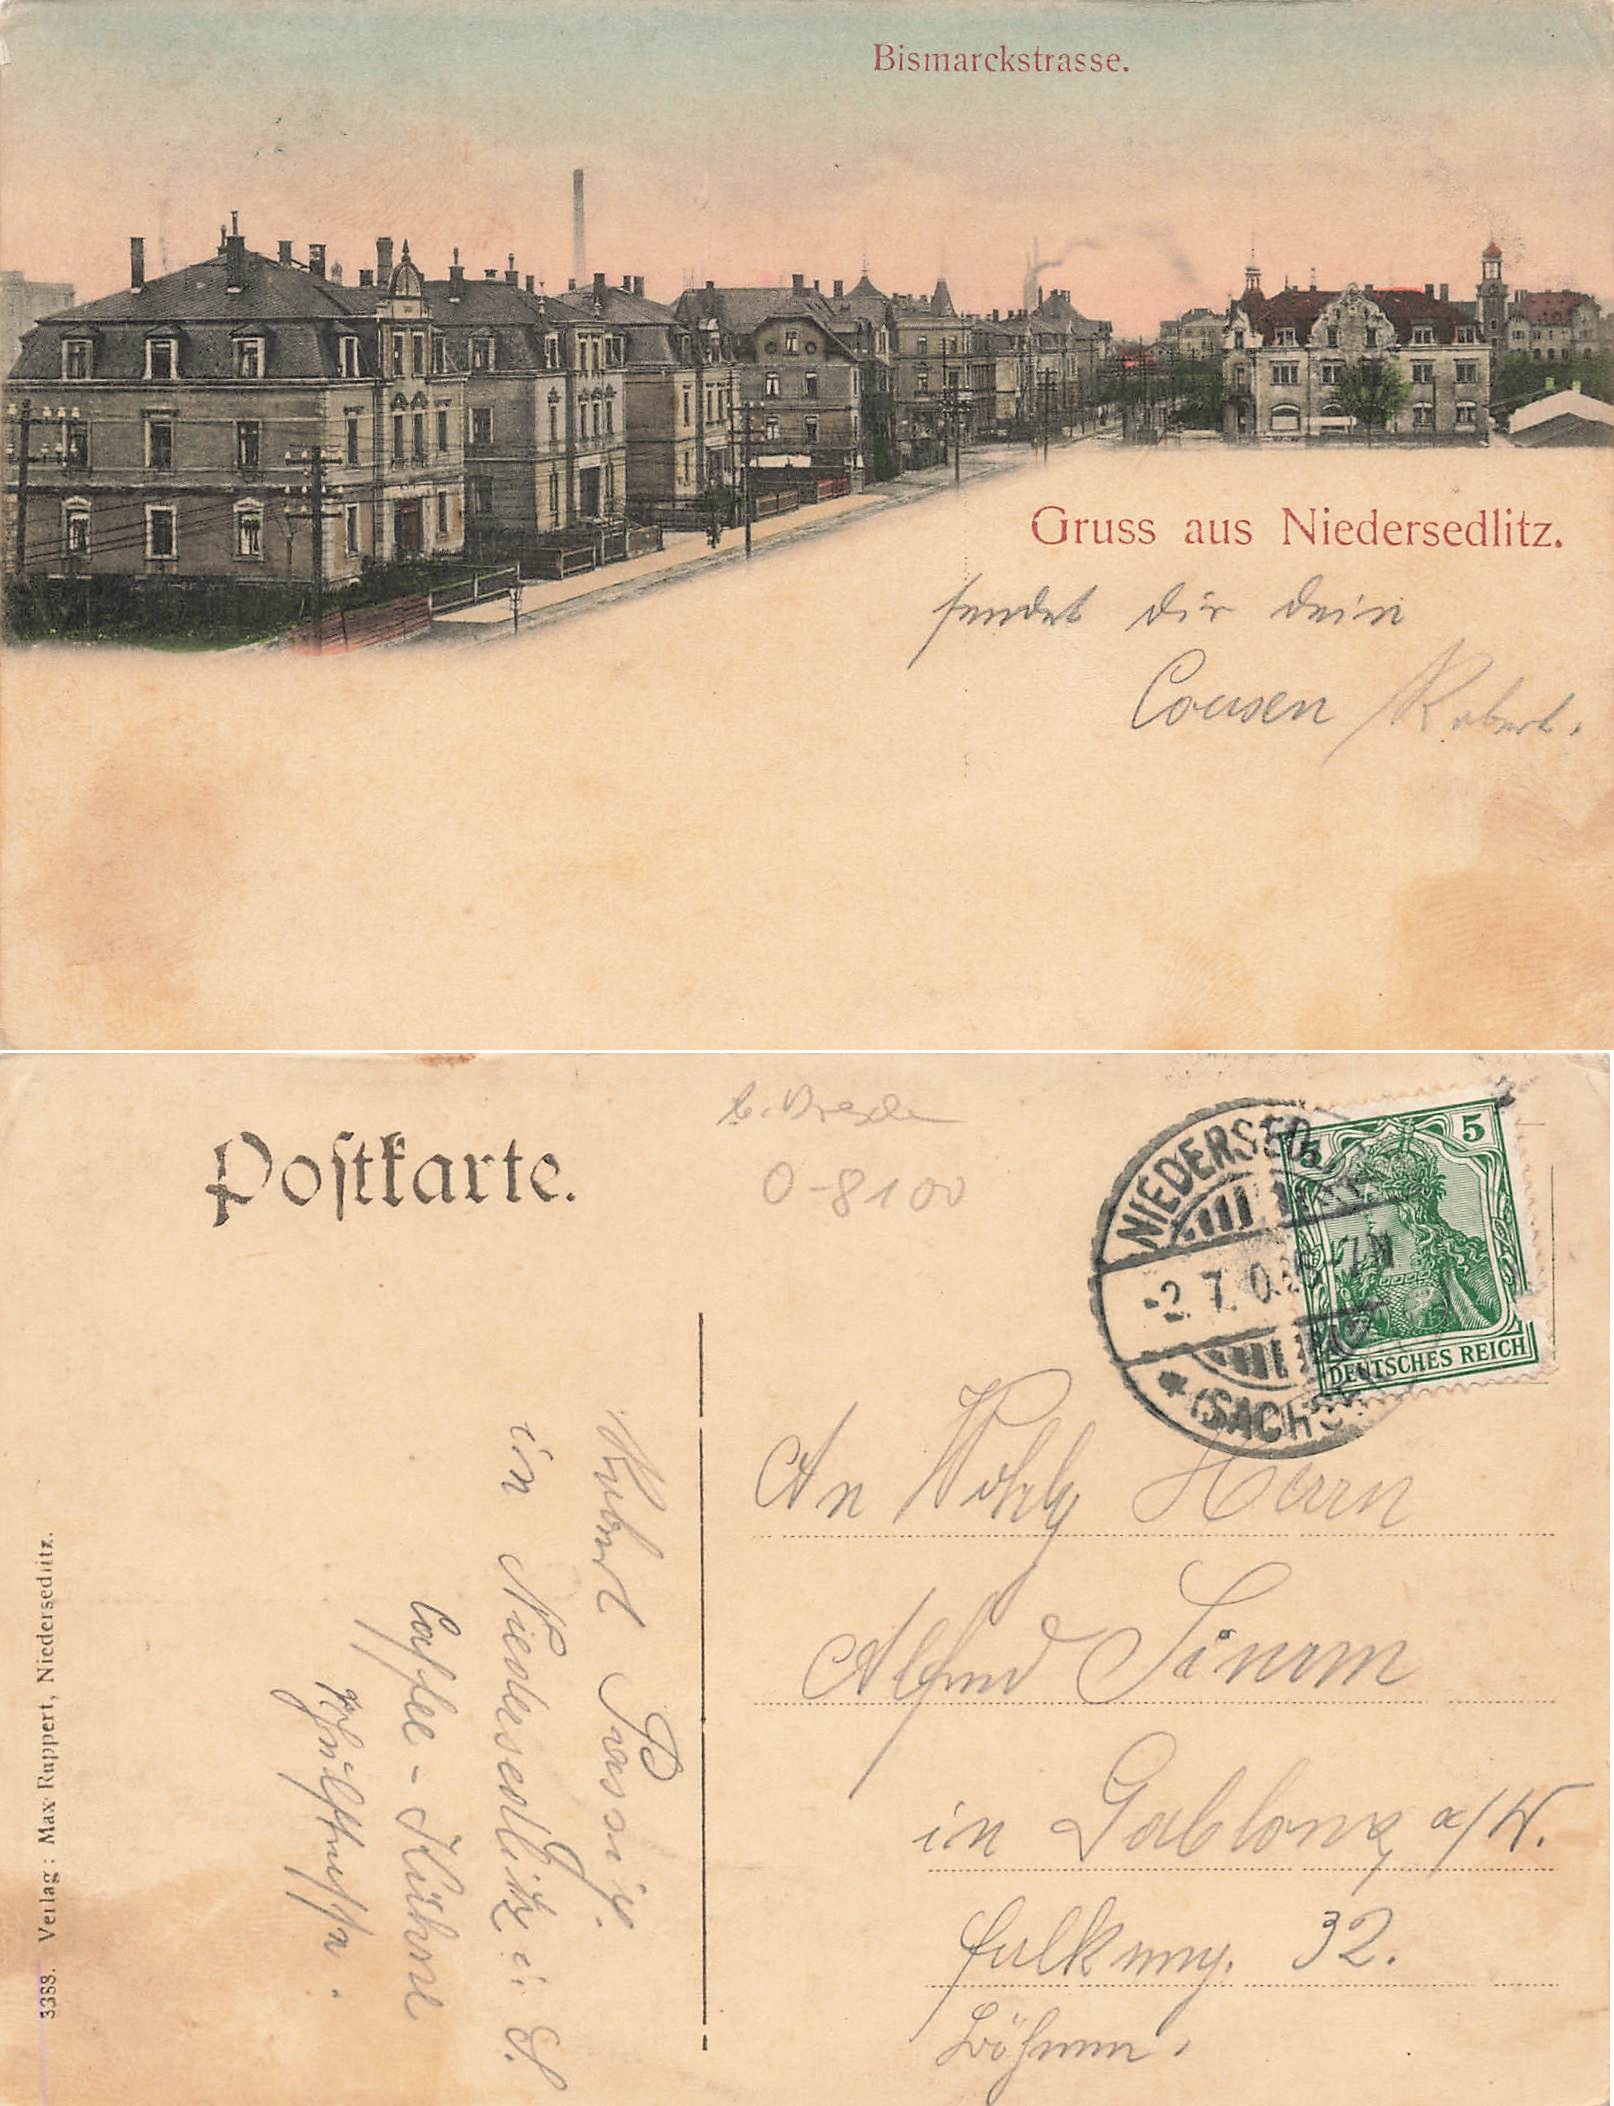 Bismarckstrasse.
Gruss aus Niedersedlitz.
sendet dir dein
Cousen Robert.
Postkarte.
b. Dresden
O-8100
NIEDERSEDLITZ
-2. 7. 0
* (SACHSEN)
5 5
DEUTSCHES REICH
An Wohlg Herrn
Alfred Simm
in Gablonz a/N.
32.
Böhmen.
Robert Passig.
in Niedersedlitz i. S.
Caffee-Kühne
3388. Verlag: Max Ruppert, Niedersedlitz.